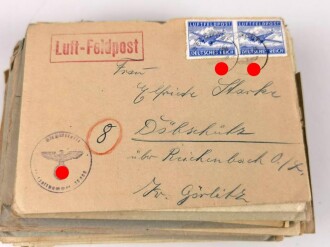 Luft-Feldpost
LUFTFELDPOST LUFTFELDPOST
DEUTSCHES REICH DEUTSCHES REICH
Frau
Elfriede Starke
8
Döbschütz
über Reichenbach O/L.
Kr. Görlitz